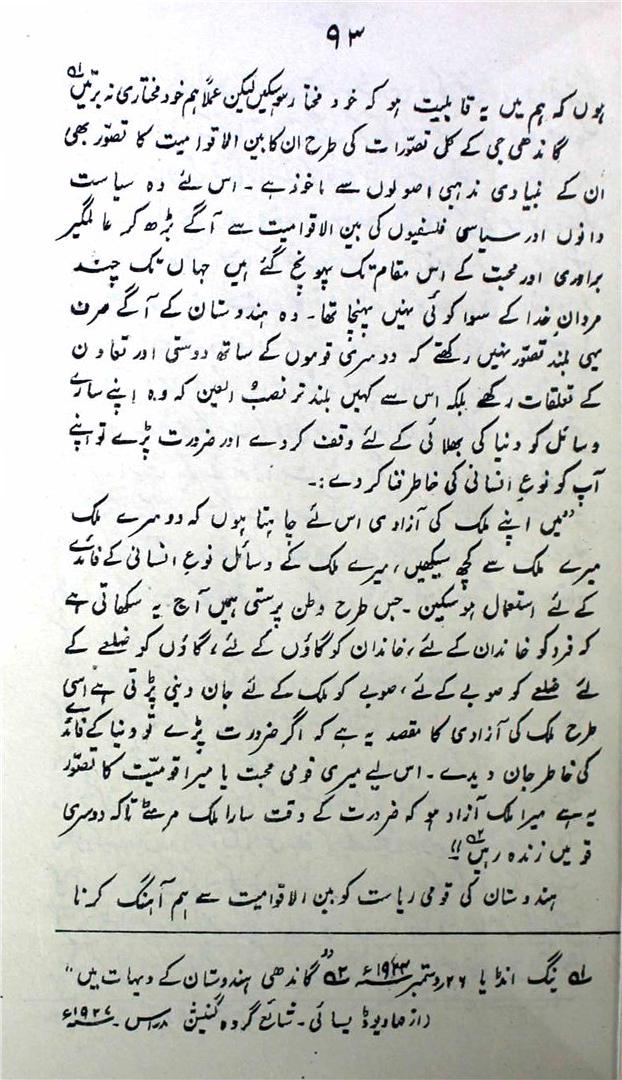 ۹۳
ہوں کہ ہم میں یہ قابلیت ہو کہ خود مختار رہ سکیں لیکن عملاً ہم خود مختاری نہ برتیں ؎۱
گاندھی جی کے کل تصوّرات کی طرح ان کا بین الاقوامیت کا تصوّر بھی
ان کے بنیادی مذہبی اصولوں سے ماخوذ ہے ۔ اس لئے وہ سیاست
دانوں اور سیاسی فلسفیوں کی بین الاقوامیت سے آگے بڑھ کر عالمگیر
برادری اور محبت کے اس مقام تک پہونچ گئے ہیں جہاں تک چند
مردانِ خدا کے سوا کوئی نہیں پہنچا تھا۔ وہ ہندوستان کے آگے صرف
یہی بلند تصوّر نہیں رکھتے کہ دوسری قوموں کے ساتھ دوستی اور تعاون
کے تعلقات رکھے بلکہ اس سے کہیں بلند تر نصبُ العین کہ وہ اپنے سارے
وسائل کو دنیا کی بھلائی کے لئے وقف کر دے اور ضرورت پڑے تو اپنے
آپ کو نوعِ انسانی کی خاطر فنا کر دے :۔
”میں اپنے ملک کی آزادی اس لئے چاہتا ہوں کہ دوسرے ملک
میرے ملک سے کچھ سیکھیں، میرے ملک کے وسائل نوعِ انسانی کے فائدے
کے لئے استعمال ہو سکیں ۔ جس طرح وطن پرستی ہمیں آج یہ سکھاتی ہے
کہ فرد کو خاندان کے لئے، خاندان کو گاؤں کے لئے، گاؤں کو ضلعے کے
لئے ضلعے کو صوبے کے لئے، صوبے کو ملک کے لئے جان دینی پڑتی ہے اسی
طرح ملک کی آزادی کا مقصد یہ ہے کہ اگر ضرورت پڑے تو دنیا کے فائدے
کی خاطر جان دیدے ۔ اس لیے میری قومی محبت یا میرا قومیّت کا تصوّر
یہ ہے میرا ملک آزاد ہو کہ ضرورت کے وقت سارا ملک مر مٹے تاکہ دوسری
قومیں زندہ رہیں ؎۲ !!
ہندوستان کی قومی ریاست کو بین الاقوامیت سے ہم آہنگ کرنا
؎۱ ینگ انڈیا ۲۶ دسمبر ؁ء ؎۲ ”گاندھی ہندوستان کے دیہات میں“
(از مہادیو ڈیسائی ۔ شائع کردہ گنیش مدراس ۔ ۱۹۲۷ء